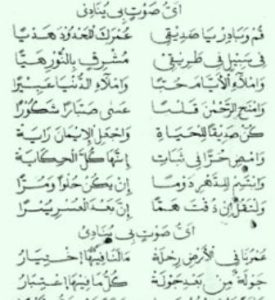 أيّ صوت بي ينادي
قم وبادر يا صديقي عمرك المعدود هديا
في سبيل في طريقي مشرق بالنور هيا
واملأ الأيام حبا واملأ الدنيا عبيرا
وامنح الرحمن قلبا عش صبارا شكورا
كن صديقا للحياة واجعل الإيمان راية
وامض حرا في ثبات إنها كل الحكاية
وابتسم للدهر دوما إن يكن حلوا ومرا
ولتقل إن ذقت هما إن بعد العسر يسرا
أيّ صوت بي ينادي
عمرنا في الأرض رحلة مالنا فيها اختيار
جولة من بعد جولة كل ما فيها اختبار